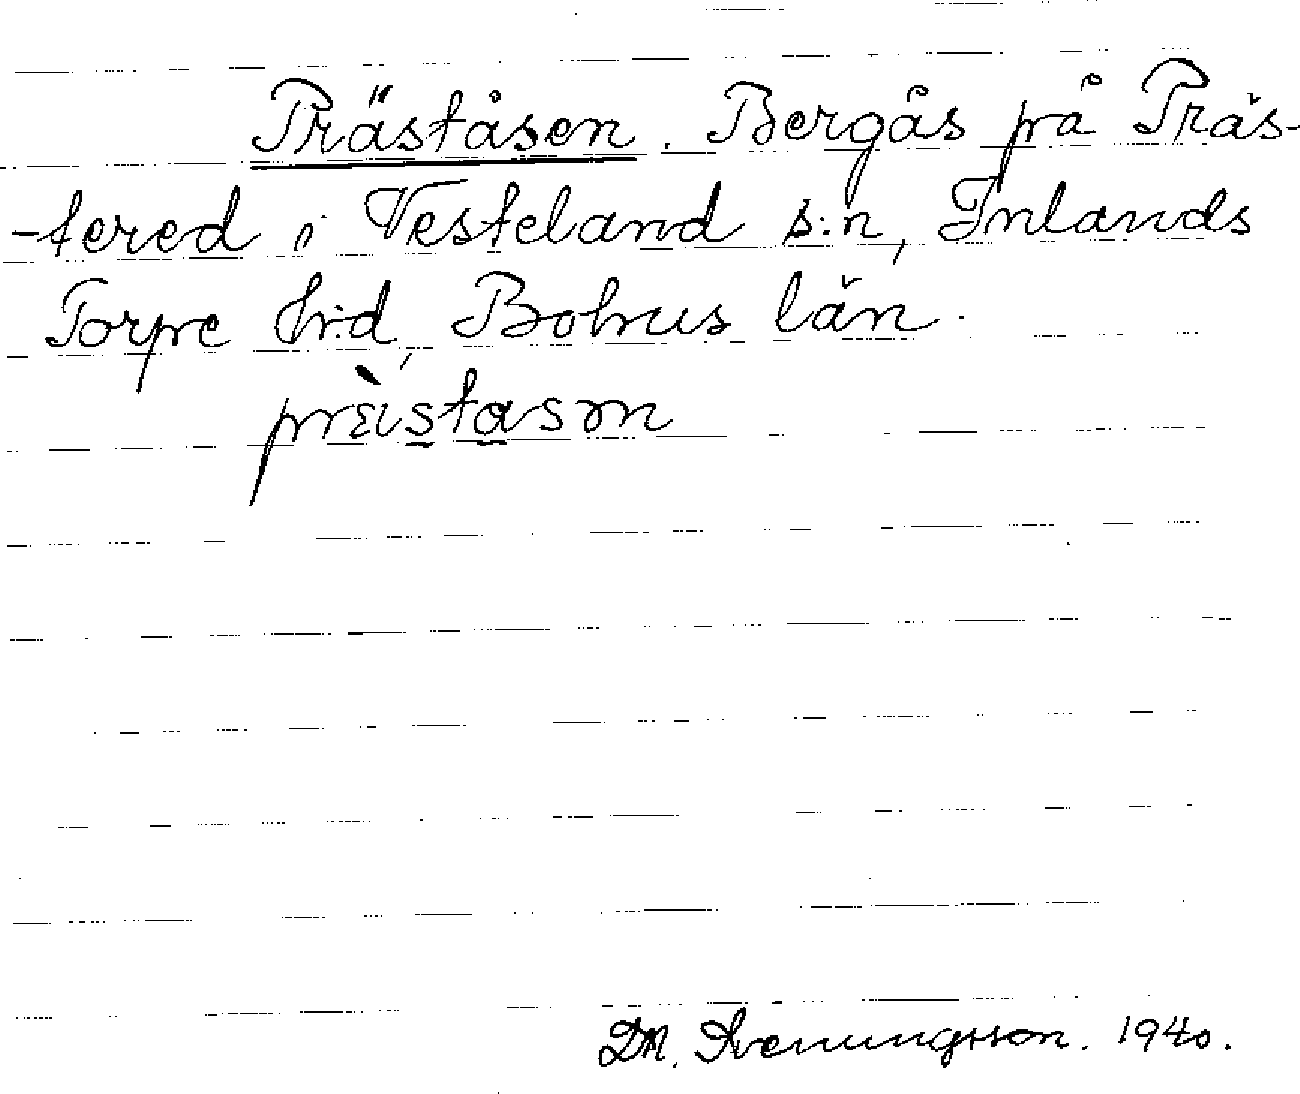 Präståsen. Bergås på Präs-
-tered i Vesteland s:n, Inlands
Torpe h:d, Bohus län.
prὲistasɔn
DM. Svenungsson. 1940.